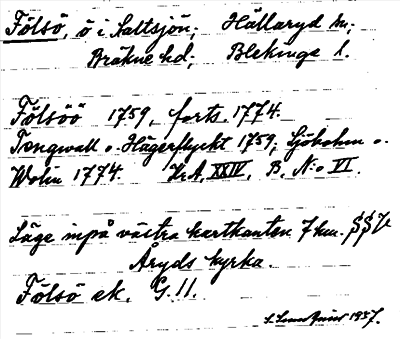 Fölsö, ö i Saltsjön; Hällaryd sn;
Bräkne hd; Blekinge l.
Fölsöö 1759, forts. 1774.
Tengwall o. Hägerflyckt 1759; Sjöbohm o.
Wolin 1774. Kr.A, XXIV, B, No VI.
Läge inpå västra kartkanten 7 km. SSV
Åryds kyrka.
Fölsö ek. G.11.
1937.